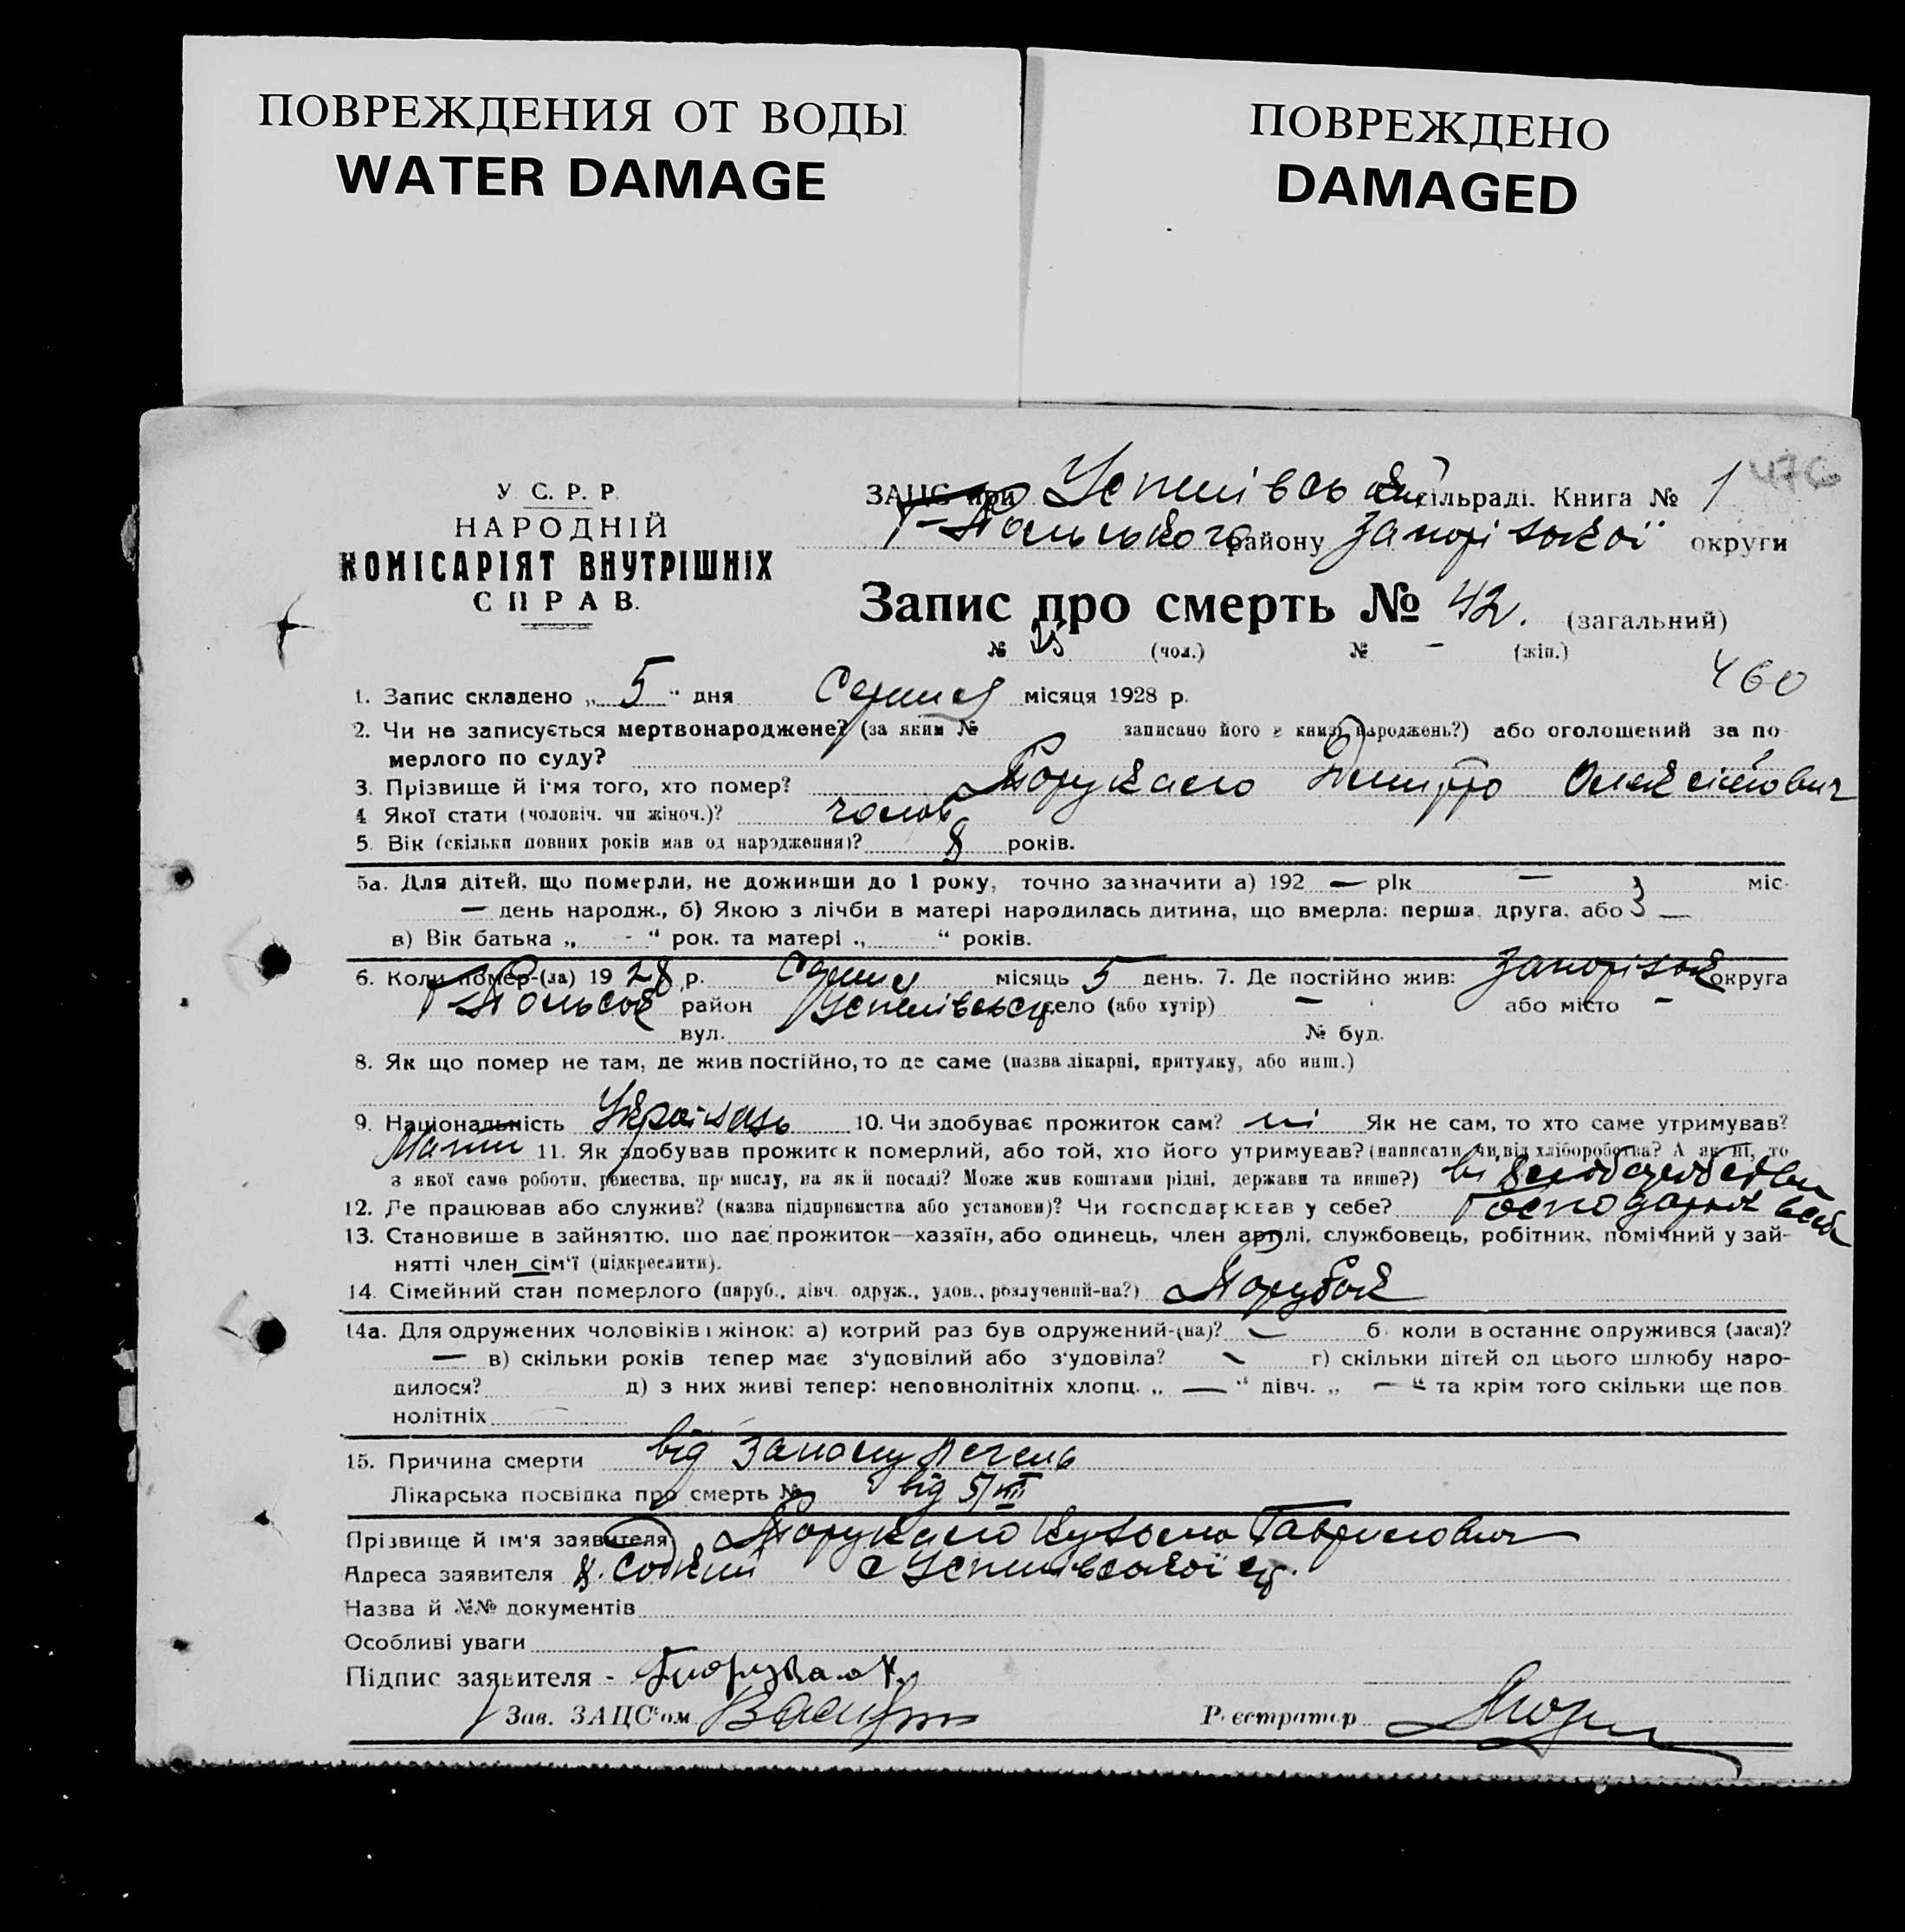 ПОВРЕЖДЕНИЯ ОТ ВОДЫ
WATER DAMAGE
ПОВРЕЖДЕНО
DAMAGED
У. С. Р. Р.
НАРОДНІЙ
КОМІСАРІЯТ ВНУТРІШНІХ
СПРАВ.
ЗАЦС при Успенівській сільраді. Книга № 1 476
району Запорізької округи
Запис про смерть № 42. (загальний)
№ (чол.) № - (жін.)
460
1. Запис складено „ 5 “ дня Серпня місяця 1928 р.
2. Чи не записується мертвонароджене? (за яким № записано його в книзі народжень?) або оголошений за по-
мерлого по суду?
3. Прізвище й ім'я того, хто помер? Дмитро Олексійович
4. Якої стати (чоловіч. чи жіноч.)? чолов
5. Вік (скільки повних років мав од народження)? 8 років.
5а. Для дітей, що померли, не доживши до 1 року, точно зазначити а) 192 — рік — міс.
— день народж., б) Якою з лічби в матері народилась дитина, що вмерла: перша, друга, або —
в) Вік батька „ - “ рок. та матері „ “ років.
6. Коли помер-(ла) 1928 р. Серпня місяць 5 день. 7. Де постійно жив: Запорізьк округа
район село (або хутір) — або місто -
вул. № буд.
8. Як що помер не там, де жив постійно, то де саме (назва лікарні, притулку, або инш.)
9. Національність Українець 10. Чи здобуває прожиток сам? ні Як не сам, то хто саме утримував?
Мати 11. Як здобував прожиток померлий, або той, хто його утримував? (написати чи від хліборобства? А як ні, то
з якої само роботи, ремества, промислу, на якій посаді? Може жив коштами рідні, держави та инше?) від хліборобства
12. Де працював або служив? (назва підприємства або установи)? Чи господарював у себе?
13. Становище в зайняттю, що дає прожиток—хазяїн, або одинець, член артілі, службовець, робітник, помічний у зай-
нятті член сім'ї (підкреслити).
14. Сімейний стан померлого (паруб., дівч. одруж., удов., розлучений-на?) Парубок
14а. Для одружених чоловіків і жінок: а) котрий раз був одружений-(на)? — б) коли востаннє одружився (лася)?
— в) скільки років тепер має з'удовілий або з'удовіла? г) скільки дітей од цього шлюбу наро-
дилося? д) з них живі тепер: неповнолітніх хлопц. „ — “ дівч. „ — “ та крім того скільки ще пов-
нолітніх
15. Причина смерти від запалу
Лікарська посвідка про смерть № від 5/VIII
Прізвище й ім'я заявителя Кузьма Гаврилович
Адреса заявителя Успенівської с/р.
Назва й №№ документів
Особливі уваги
Підпис заявителя -
Зав. ЗАЦС'ом
Реєстратор